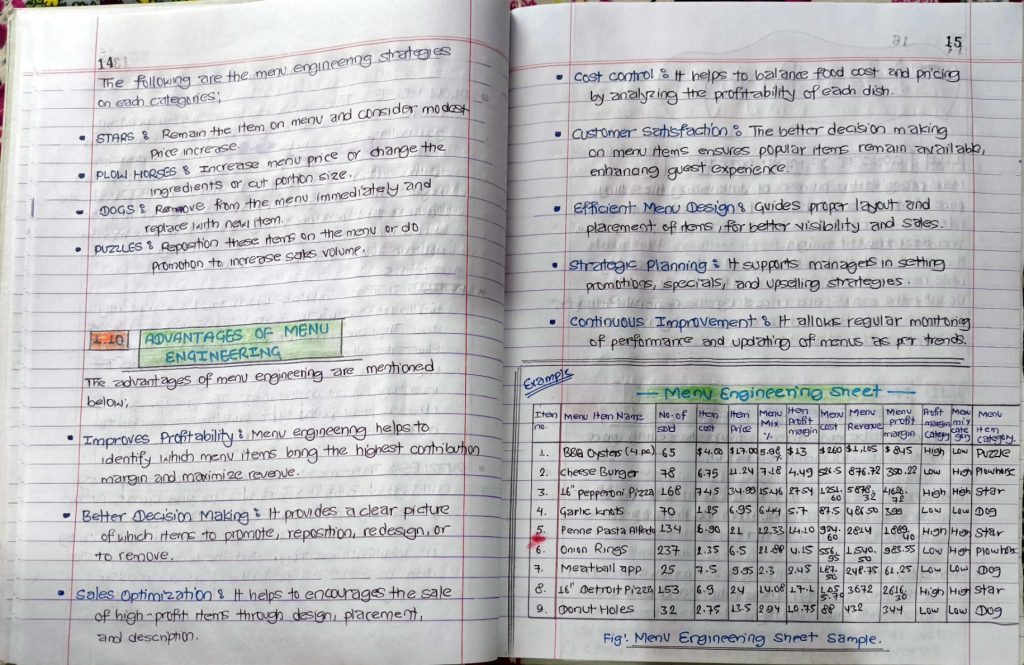 14
The following are the menu engineering strategies
on each categories;
• STARS : Remain the item on menu and consider modest
price increase.
• PLOW HORSES : Increase menu price or change the
ingredients or cut portion size.
• DOGS : Remove from the menu immediately and
replace with new item.
• PUZZLES : Reposition these items on the menu or do
promotion to increase sales volume.
1.10 ADVANTAGES OF MENU
ENGINEERING
The advantages of menu engineering are mentioned
below;
• Improves Profitability : Menu engineering helps to
identify which menu items bring the highest contribution
margin and maximize revenue.
• Better Decision Making : It provides a clear picture
of which items to promote, reposition, redesign, or
to remove.
• Sales Optimization : It helps to encourages the sale
of high-profit items through design, placement,
and description.
15
• Cost control : It helps to balance food cost and pricing
by analyzing the profitability of each dish.
• Customer Satisfaction : The better decision making
on menu items ensures popular items remain available,
enhancing guest experience.
• Efficient Menu Design : Guides proper layout and
placement of items, for better visibility and sales.
• Strategic Planning : It supports managers in setting
promotions, specials, and upselling strategies.
• Continuous Improvement : It allows regular monitoring
of performance and updating of menus as per trends.
Example
Menu Engineering Sheet
Item no. Menu Item Name No. of sold Item cost Item Price Menu Mix % Item Profit margin Menu cost Menu Revenue Menu profit margin Profit margin category Menu mix category Menu Item category
1. BBQ Oysters (4 pc) 65 $4.00 $17.00 5.98% $13 $260 $1,105 $845 High Low Puzzle
2. Cheese Burger 78 6.75 11.24 7.18 4.49 526.5 876.72 350.22 Low High Plowhorse
3. 16" Pepperoni Pizza 168 7.45 34.99 15.46 27.54 1251.60 5878.32 4626.72 High High Star
4. Garlic knots 70 1.25 6.95 6.44 5.7 87.5 486.50 399 Low Low Dog
5. Penne Pasta Alfredo 134 6.90 21 12.33 14.10 924.60 2814 1889.40 High High Star
6. Onion Rings 237 2.35 6.5 21.80 4.15 556.95 1,540.50 983.55 Low High Plowhorse
7. Meatball app 25 7.5 9.95 2.3 2.45 187.50 248.75 61.25 Low Low Dog
8. 16" Detroit Pizza 153 6.9 24 14.08 17.1 1,055.70 3672 2616.30 High High Star
9. Donut Holes 32 2.75 13.5 2.94 10.75 88 432 344 Low Low Dog
Fig: Menu Engineering Sheet Sample.